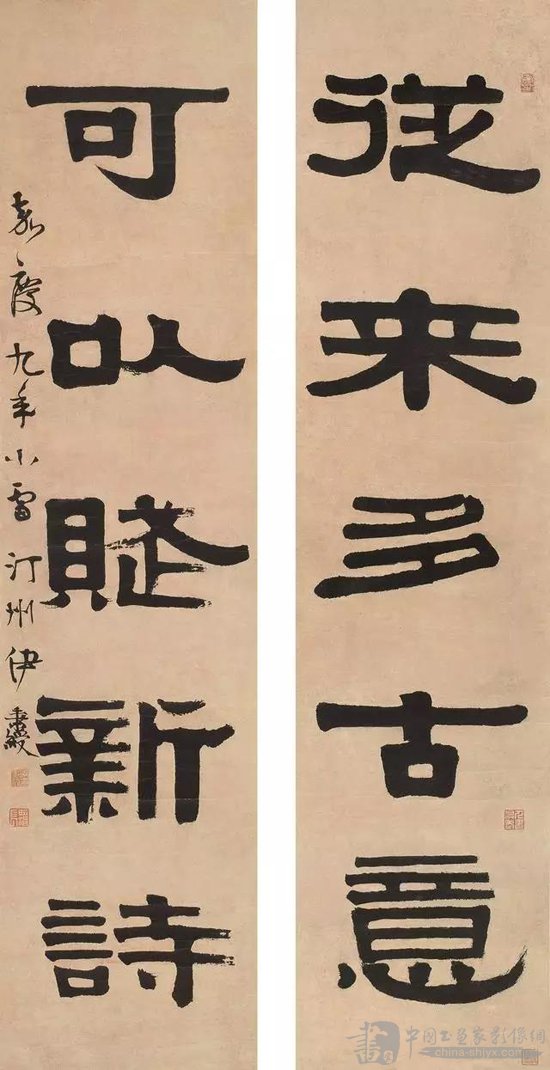 從来多古意
可以賦新詩
嘉慶九年小雪汀州伊秉綬
中国书画家影像网
china-shiyx.com